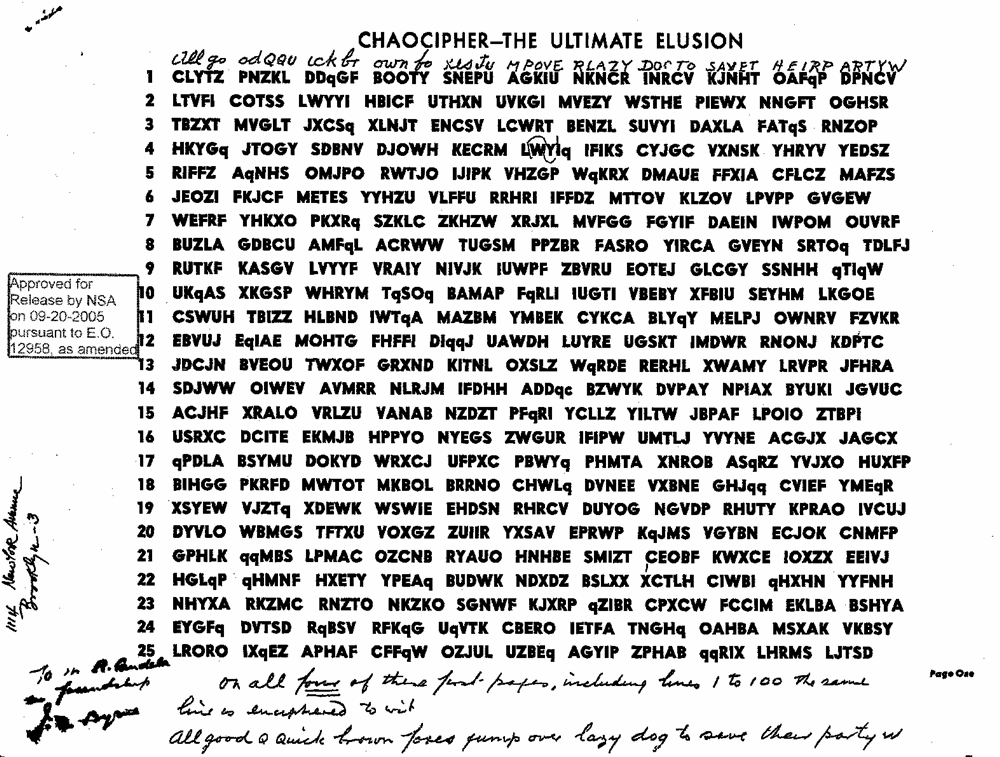 CHAOCIPHER—THE ULTIMATE ELUSION
All go odQQU ick br own fo xesju MPOVE RLAZY DOGTO SAVET HEIRP ARTYW
1 CLYTZ PNZKL DDqGF BOOTY SNEPU AGKIU NKNCR INRCV KJNHT OAFqP DPNCV
2 LTVFI COTSS LWYYI HBICF UTHXN UVKGI MVEZY WSTHE PIEWX NNGFT OGHSR
3 TBZXT MVGLT JXCSq XLNJT ENCSV LCWRT BENZL SUVYI DAXLA FATqS RNZOP
4 HKYGq JTOGY SDBNV DJOWH KECRM LWYIq IFIKS CYJGC VXNSK YHRYV YEDSZ
5 RIFFZ AqNHS OMJPO RWTJO IJIPK VHZGP WqKRX DMAUE FFXIA CFLCZ MAFZS
6 JEOZI FKJCF METES YYHZU VLFFU RRHRI IFFDZ MTTOV KLZOV LPVPP GVGEW
7 WEFRF YHKXO PKXRq SZKLC ZKHZW XRJXL MVFGG FGYIF DAEIN IWPOM OUVRF
8 BUZLA GDBCU AMFqL ACRWW TUGSM PPZBR FASRO YIRCA GVEYN SRTOq TDLFJ
9 RUTKF KASGV LVYYF VRAIY NIVJK IUWPF ZBVRU EOTEJ GLCGY SSNHH qTIqW
10 UKqAS XKGSP WHRYM TqSOq BAMAP FqRLI IUGTI VBEBY XFBIU SEYHM LKGOE
11 CSWUH TBIZZ HLBND IWTqA MAZBM YMBEK CYKCA BLYqY MELPJ OWNRV FZVKR
12 EBVUJ EqIAE MOHTG FHFFI DIqqJ UAWDH LUYRE UGSKT IMDWR RNONJ KDPTC
13 JDCJN BVEOU TWXOF GRXND KITNL OXSLZ WqRDE RERHL XWAMY LRVPR JFHRA
14 SDJWW OIWEV AVMRR NLRJM IFDHH ADDqc BZWYK DVPAY NPIAX BYUKI JGVUC
15 ACJHF XRALO VRLZU VANAB NZDZT PFqRI YCLLZ YILTW JBPAF LPOIO ZTBPI
16 USRXC DCITE EKMJB HPPYO NYEGS ZWGUR IFIPW UMTLJ YVYNE ACGJX JAGCX
17 qPDLA BSYMU DOKYD WRXCJ UFPXC PBWYq PHMTA XNROB ASqRZ YVJXO HUXFP
18 BIHGG PKRFD MWTOT MKBOL BRRNO CHWLq DVNEE VXBNE GHJqq CVIEF YMEqR
19 XSYEW VJZTq XDEWK WSWIE EHDSN RHRCV DUYOG NGVDP RHUTY KPRAO IVCUJ
20 DYVLO WBMGS TFTXU VOXGZ ZUIIR YXSAV EPRWP KqJMS VGYBN ECJOK CNMFP
21 GPHLK qqMBS LPMAC OZCNB RYAUO HNHBE SMIZT CEOBF KWXCE IOXZX EEIVJ
22 HGLqP qHMNF HXETY YPEAq BUDWK NDXDZ BSLXX XCTLH CIWBI qHXHN YYFNH
23 NHYXA RKZMC RNZTO NKZKO SGNWF KJXRP qZIBR CPXCW FCCIM EKLBA BSHYA
24 EYGFq DVTSD RqBSV RFKqG UqVTK CBERO IETFA TNGHq OAHBA MSXAK VKBSY
25 LRORO IXqEZ APHAF CFFqW OZJUL UZBEq AGYIP ZPHAB qqRIX LHRMS LJTSD
Page One
Approved for
Release by NSA
on 09-20-2005
pursuant to E.O.
12958, as amended
1114 Newyork Avenue
Brooklyn-3
To
in friendship
J. Byrne
On all four of these first pages, including lines 1 to 100 the same
line is enciphered to wit
All good Q Quick brown foxes jump over lazy dog to save their party w